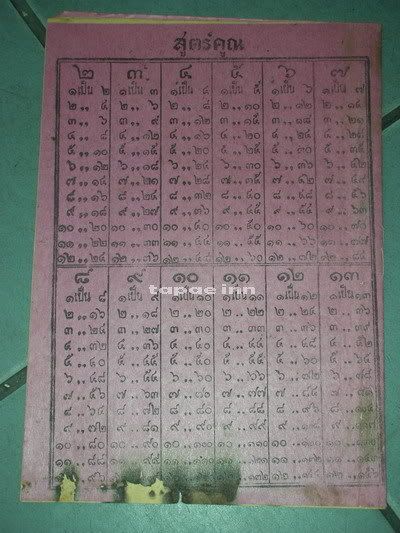 สูตร์คูณ
๒ ๓ ๔ ๕ ๖ ๗
๑เป็น ๒ ๑เป็น ๓ ๑เป็น ๔ ๑เป็น ๕ ๑เป็น ๖ ๑เป็น ๗
๒ ,, ๔ ๒ ,, ๖ ๒ ,, ๘ ๒ ,, ๑๐ ๒ ,, ๑๒ ๒ ,, ๑๔
๓ ,, ๖ ๓ ,, ๙ ๓ ,, ๑๒ ๓ ,, ๑๕ ๓ ,, ๑๘ ๓ ,, ๒๑
๔ ,, ๘ ๔ ,, ๑๒ ๔ ,, ๑๖ ๔ ,, ๒๐ ๔ ,, ๒๔ ๔ ,, ๒๘
๕ ,, ๑๐ ๕ ,, ๑๕ ๕ ,, ๒๐ ๕ ,, ๒๕ ๕ ,, ๓๐ ๕ ,, ๓๕
๖ ,, ๑๒ ๖ ,, ๑๘ ๖ ,, ๒๔ ๖ ,, ๓๐ ๖ ,, ๓๖ ๖ ,, ๔๒
๗ ,, ๑๔ ๗ ,, ๒๑ ๗ ,, ๒๘ ๗ ,, ๓๕ ๗ ,, ๔๒ ๗ ,, ๔๙
๘ ,, ๑๖ ๘ ,, ๒๔ ๘ ,, ๓๒ ๘ ,, ๔๐ ๘ ,, ๔๘ ๘ ,, ๕๖
๙ ,, ๑๘ ๙ ,, ๒๗ ๙ ,, ๓๖ ๙ ,, ๔๕ ๙ ,, ๕๔ ๙ ,, ๖๓
๑๐ ,, ๒๐ ๑๐ ,, ๓๐ ๑๐ ,, ๔๐ ๑๐ ,, ๕๐ ๑๐ ,, ๖๐ ๑๐ ,, ๗๐
๑๑ ,, ๒๒ ๑๑ ,, ๓๓ ๑๑ ,, ๔๔ ๑๑ ,, ๕๕ ๑๑ ,, ๖๖ ๑๑ ,, ๗๗
๑๒ ,, ๒๔ ๑๒ ,, ๓๖ ๑๒ ,, ๔๘ ๑๒ ,, ๖๐ ๑๒ ,, ๗๒ ๑๒ ,, ๘๔
๘ ๙ ๑๐ ๑๑ ๑๒ ๑๓
tapae inn
๑เป็น ๘ ๑เป็น ๙ ๑เป็น ๑๐ ๑เป็น ๑๑ ๑เป็น ๑๒ ๑เป็น ๑๓
๒ ,, ๑๖ ๒ ,, ๑๘ ๒ ,, ๒๐ ๒ ,, ๒๒ ๒ ,, ๒๔ ๒ ,, ๒๖
๓ ,, ๒๔ ๓ ,, ๒๗ ๓ ,, ๓๐ ๓ ,, ๓๓ ๓ ,, ๓๖ ๓ ,, ๓๙
๔ ,, ๓๒ ๔ ,, ๓๖ ๔ ,, ๔๐ ๔ ,, ๔๔ ๔ ,, ๔๘ ๔ ,, ๕๒
๕ ,, ๔๐ ๕ ,, ๔๕ ๕ ,, ๕๐ ๕ ,, ๕๕ ๕ ,, ๖๐ ๕ ,, ๖๕
๖ ,, ๔๘ ๖ ,, ๕๔ ๖ ,, ๖๐ ๖ ,, ๖๖ ๖ ,, ๗๒ ๖ ,, ๗๘
๗ ,, ๕๖ ๗ ,, ๖๓ ๗ ,, ๗๐ ๗ ,, ๗๗ ๗ ,, ๘๔ ๗ ,, ๙๑
๘ ,, ๖๔ ๘ ,, ๗๒ ๘ ,, ๘๐ ๘ ,, ๘๘ ๘ ,, ๙๖ ๘ ,, ๑๐๔
๙ ,, ๗๒ ๙ ,, ๘๑ ๙ ,, ๙๐ ๙ ,, ๙๙ ๙ ,, ๑๐๘ ๙ ,, ๑๑๗
๑๐ ,, ๘๐ ๑๐ ,, ๙๐ ๑๐ ,, ๑๐๐ ๑๐ ,, ๑๑๐ ๑๐ ,, ๑๒๐ ๑๐ ,, ๑๓๐
๑๑ ,, ๘๘ ๙๙ ๑๒๑ ๑๑ ,, ๑๓๒ ๑๑ ,, ๑๔๓
๙๖ ๑๓๒ ๑๒ ,, ๑๔๔ ๑๒ ,, ๑๕๖